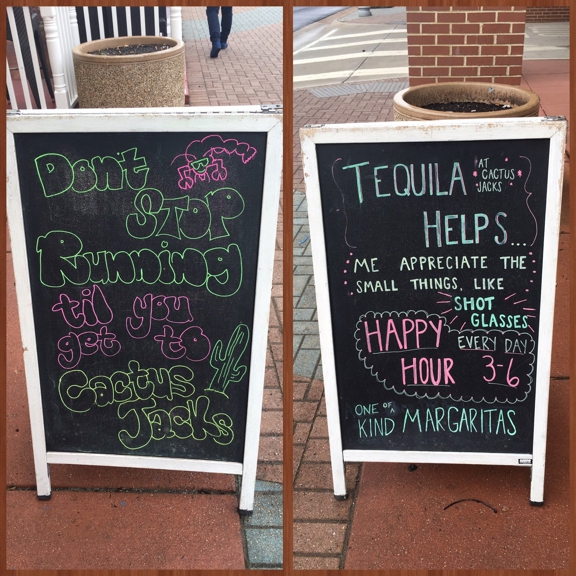 Dont
STOP
Running
til you
get to
Cactus
Jacks
TEQUILA AT CACTUS JACKS
HELPS...
ME APPRECIATE THE
SMALL THINGS, LIKE
SHOT
GLASSES
HAPPY EVERY DAY
HOUR 3-6
ONE OF A
KIND MARGARITAS